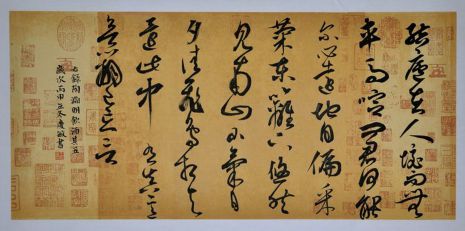 結廬在人境而無
車馬喧問君何能
爾心遠地自偏采
菊東籬下悠然
見南山山氣日
夕佳飛鳥相與
還此中有真意
欲辨已忘言
右錄陶淵明飲酒其五
歲次丙申立冬慶敏書